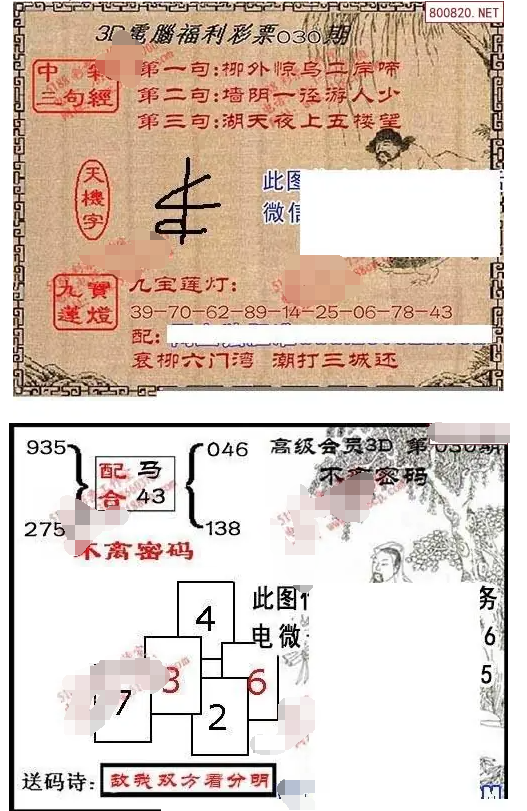 800820.NET
3D電腦福利彩票030期
中彩
三句經
第一句:柳外惊鸟二岸啼
第二句:墙阴一径游人少
第三句:湖天夜上五楼望
天機字
此图
微信
九寶
蓮燈
九宝莲灯:
39-70-62-89-14-25-06-78-43
配:
衰柳六门湾 潮打三城还
935
275
配马
合43
046
138
高级会员3D 第030期
不离密码
不离密码
4
3
6
7
2
此图
务
电微
6
5
送码诗:
敌我双方看分明